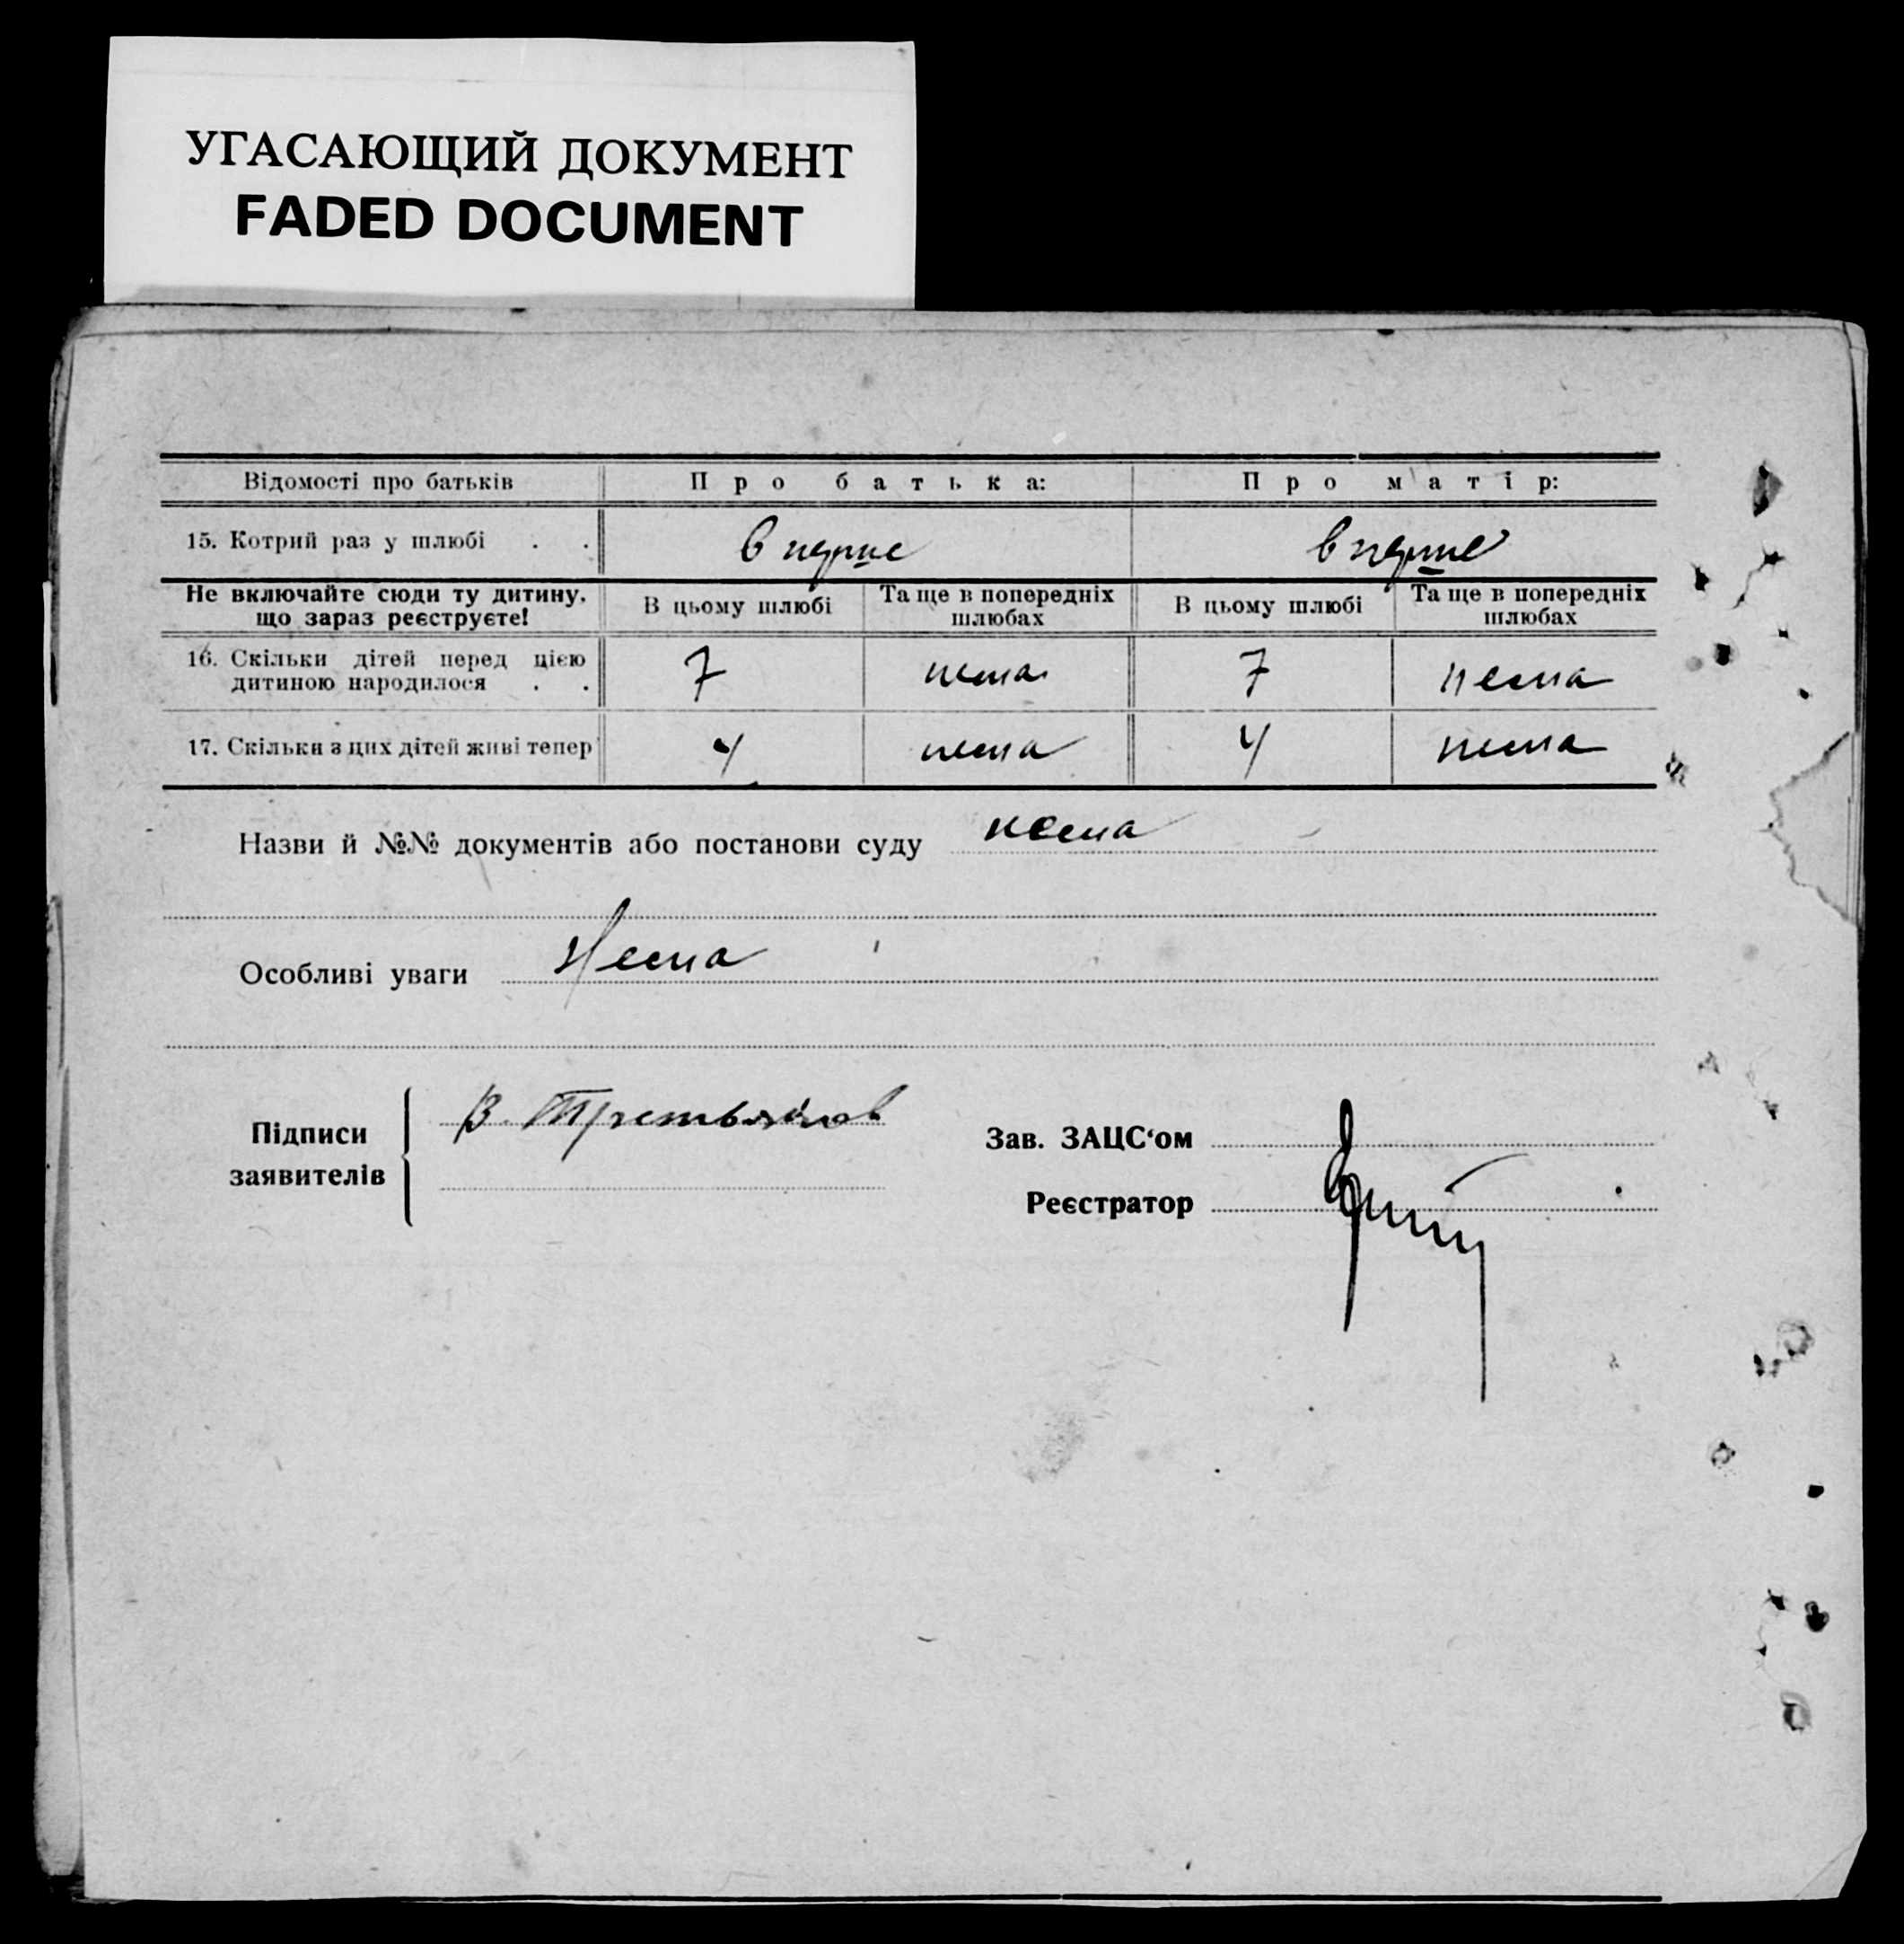 УГАСАЮЩИЙ ДОКУМЕНТ
FADED DOCUMENT
Відомості про батьків Про батька: Про матір:
15. Котрий раз у шлюбі . . вперше вперше
Не включайте сюди ту дитину, що зараз реєструєте! В цьому шлюбі Та ще в попередніх шлюбах В цьому шлюбі Та ще в попередніх шлюбах
16. Скільки дітей перед цією дитиною народилося . . 7 нема 7 нема
17. Скільки з цих дітей живі тепер 4 нема 4 нема
Назви й №№ документів або постанови суду нема
Особливі уваги Нема
Підписи заявителів В. Третьяков
Зав. ЗАЦС‘ом
Реєстратор